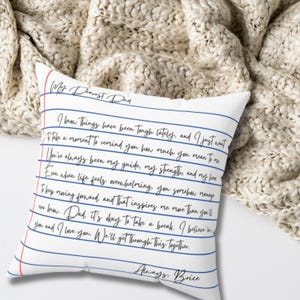 My Dearest Dad
I know things have been tough lately, and I just want
to take a moment to remind you how much you mean to me.
You've always been my guide, my strength, and my hero.
Even when life feels overwhelming, you somehow manage
to keep moving forward, and that inspires me more than you'll
ever know. Dad, it's okay to take a break. I believe in
you and I love you. We'll get through this together.
Always, Brice